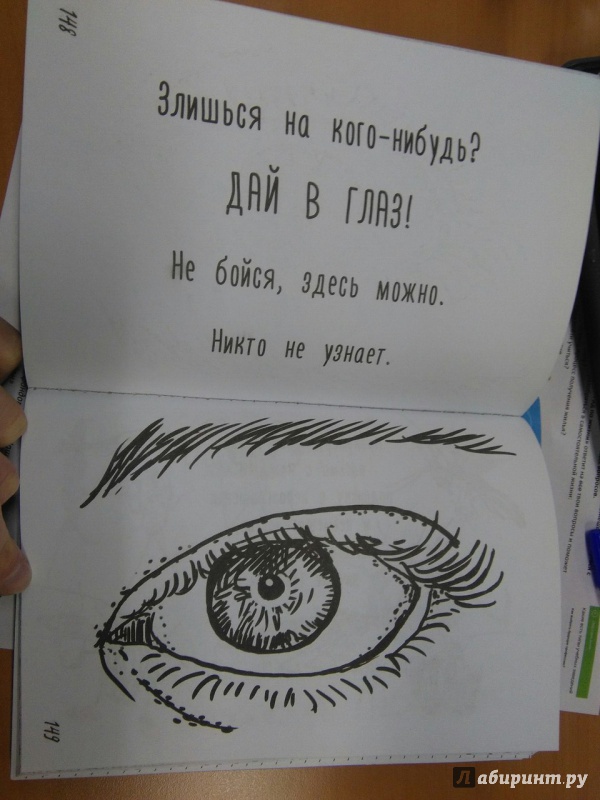 148
Злишься на кого-нибудь?
ДАЙ В ГЛАЗ!
Не бойся, здесь можно.
Никто не узнает.
149
Лабиринт.ру